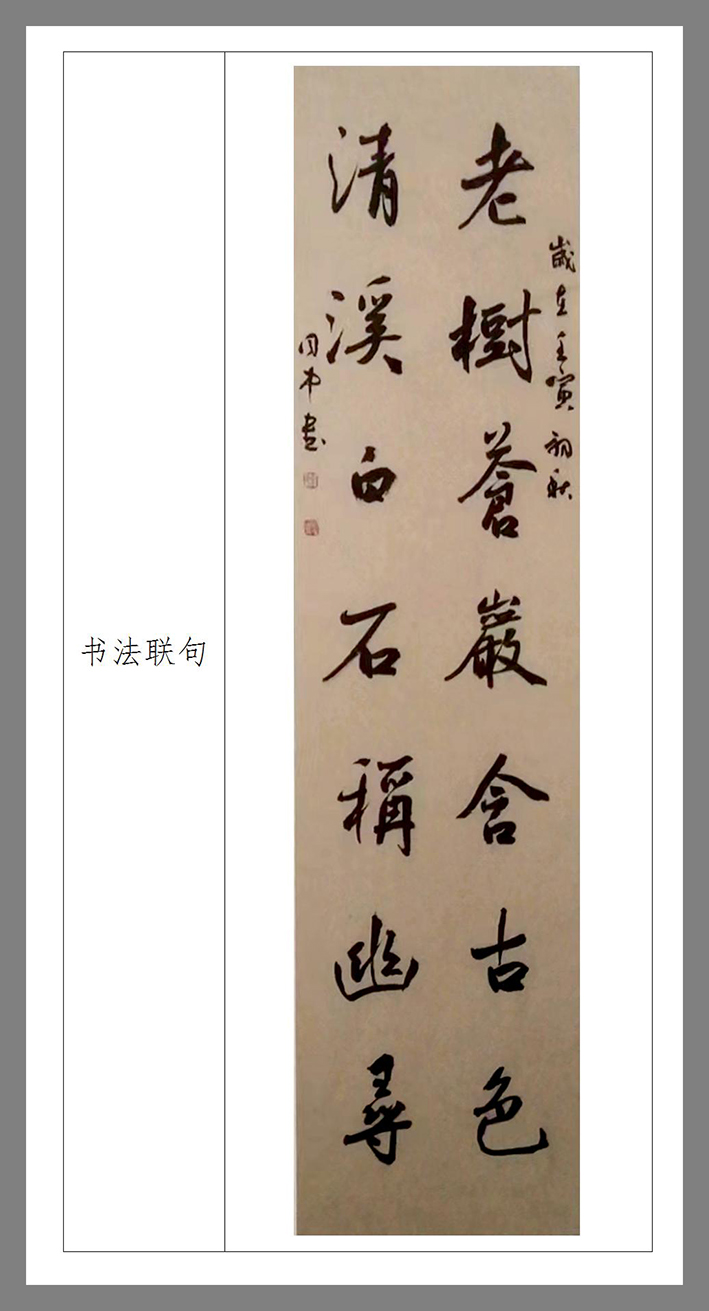 书法联句
歲在壬寅初秋
老樹蒼巖含古色
清溪白石稱幽尋